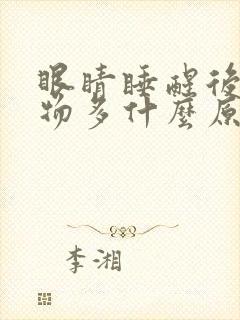 眼睛睡醒後
物多什麼原
李湘